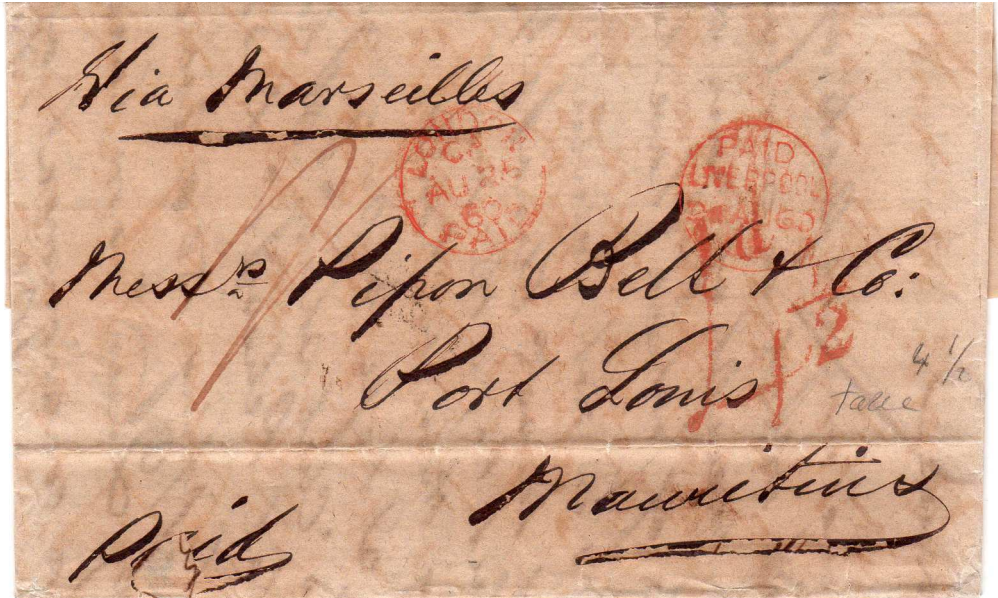 Via Marseilles
LONDON
AU 25
60
PAID
PAID
LIVERPOOL
AU 60
Messrs Pipon Bell & Co:
1d
1/2
Port Louis
4 1/2
Mauritius
Paid